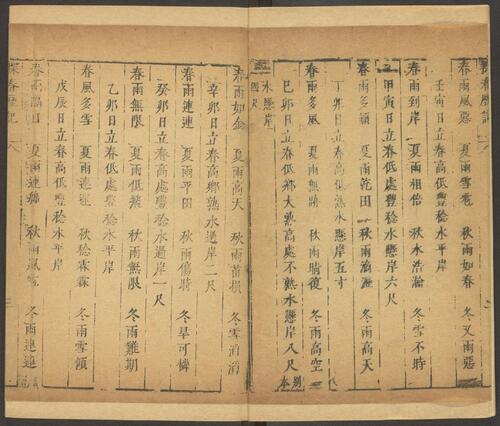 春雨風惡　夏雨雪寬　秋雨如春　冬又雨惡
壬寅日立春高低豐稔水平岸
春雨到岸　夏雨相倍　秋水浩瀚　冬雪不時
甲寅日立春低處豐稔水懸岸六尺
春雨多　夏雨乾田　秋雨滴瀝　冬雨高天
丁卯日立春高低熟水懸岸五寸
春雨多風　夏雨無時　秋雨晴復　冬雨高空
巳卯日立春低鄉大熟高處不熟水懸岸八尺 別本
水懸岸四尺
春雨如金　夏雨高天　秋雨苗損　冬雪消消
辛卯日立春高鄉熟水過岸二尺
春雨連連　夏雨平田　秋雨傷時　冬旱可憐
癸卯日立春高處豐稔水過岸一尺
春雨無限　夏雨低蒸　秋雨無限　冬雨難期
乙卯日立春低處豐稔水平岸
春風多雪　夏雨遠運　秋稔霖霖　冬雨雪領
戊辰日立春高低豐稔水平岸
春雨滿田　夏雨連鄉　秋雨風雪　冬雨連連
探春歷記